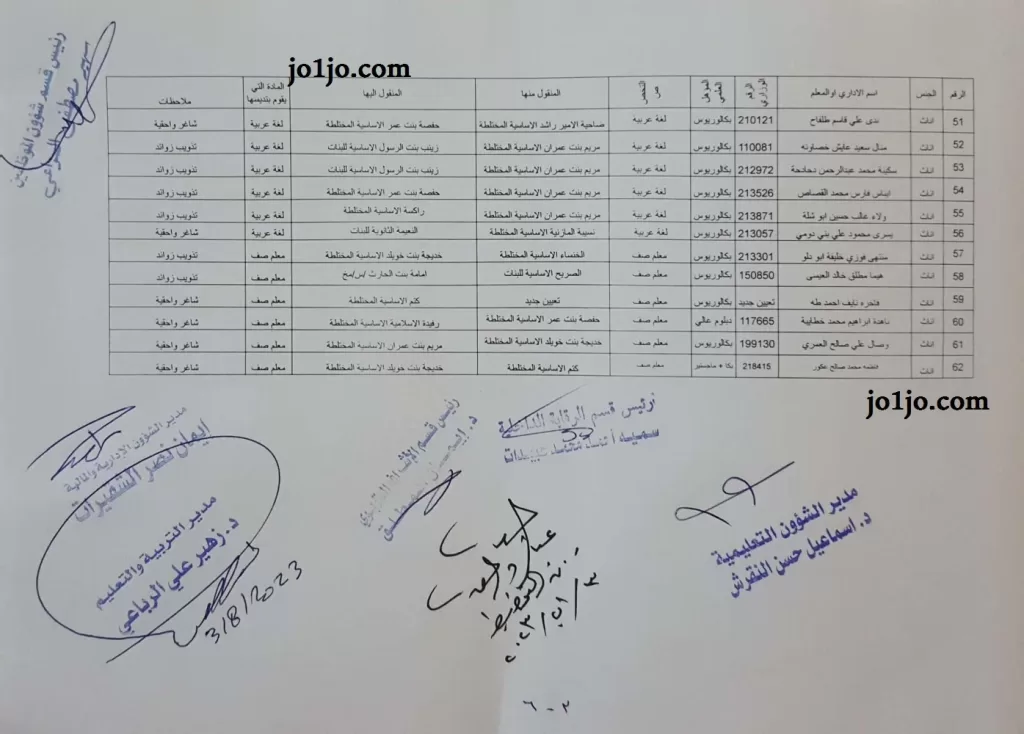 jo1jo.com
الرقم الجنس اسم الاداري اوالمعلم الرقم الوزاري المؤهل العلمي التخصص المنقول منها المنقول اليها المادة التي يقوم بتدريسها ملاحظات
51 اناث ندى علي قاسم طلفاح 210121 بكالوريوس لغة عربية ضاحية الامير راشد الاساسية المختلطة حفصة بنت عمر الاساسية المختلطة لغة عربية شاغر واحقية
52 اناث منال سعيد عايش خصاونه 110081 بكالوريوس لغة عربية مريم بنت عمران الاساسية المختلطة زينب بنت الرسول الاساسية للبنات لغة عربية تذويب زوائد
53 اناث سكينة محمد عبدالرحمن دحادحة 212972 بكالوريوس لغة عربية مريم بنت عمران الاساسية المختلطة زينب بنت الرسول الاساسية للبنات لغة عربية تذويب زوائد
54 اناث ايناس فارس محمد القصاص 213526 بكالوريوس لغة عربية مريم بنت عمران الاساسية المختلطة حفصة بنت عمر الاساسية المختلطة لغة عربية تذويب زوائد
55 اناث ولاء غالب حسين ابو شلة 213871 بكالوريوس لغة عربية مريم بنت عمران الاساسية المختلطة راكسة الاساسية المختلطة لغة عربية تذويب زوائد
56 اناث يسرى محمود علي بني دومي 213057 بكالوريوس لغة عربية نسيبة المازنية الاساسية المختلطة النعيمة الثانوية للبنات لغة عربية شاغر واحقية
57 اناث منتهى فوزي خليفة ابو دلو 213301 بكالوريوس معلم صف الخنساء الاساسية المختلطة خديجة بنت خويلد الاساسية المختلطة معلم صف تذويب زوائد
58 اناث هيما مطلق خالد العيسى 150850 بكالوريوس معلم صف الصريح الاساسية للبنات امامة بنت الحارث /س/مخ معلم صف تذويب زوائد
59 اناث فاخره نايف احمد طه تعيين جديد بكالوريوس معلم صف تعيين جديد كتم الاساسية المختلطة معلم صف شاغر واحقية
60 اناث ناهدة ابراهيم محمد خطايبة 117665 دبلوم عالي معلم صف حفصة بنت عمر الاساسية المختلطة رفيدة الاسلامية الاساسية المختلطة معلم صف شاغر واحقية
61 اناث وصال علي صالح العمري 199130 بكالوريوس معلم صف خديجة بنت خويلد الاساسية المختلطة مريم بنت عمران الاساسية المختلطة معلم صف شاغر واحقية
62 اناث فاطمه محمد صالح عكور 218415 بكا + ماجستير معلم صف كتم الاساسية المختلطة خديجة بنت خويلد الاساسية المختلطة معلم صف شاغر واحقية
jo1jo.com
رئيس قسم شؤون الموظفين
رئيس قسم الرقابة الداخلية
رئيس قسم الإشراف التربوي
مدير الشؤون التعليمية
د. اسماعيل حسن النقرش
مدير الشؤون الإدارية والمالية
ايمان نصر الشميرات
مدير التربية والتعليم
د. زهير علي الرباعي
3/8/2023
٢ - ٦